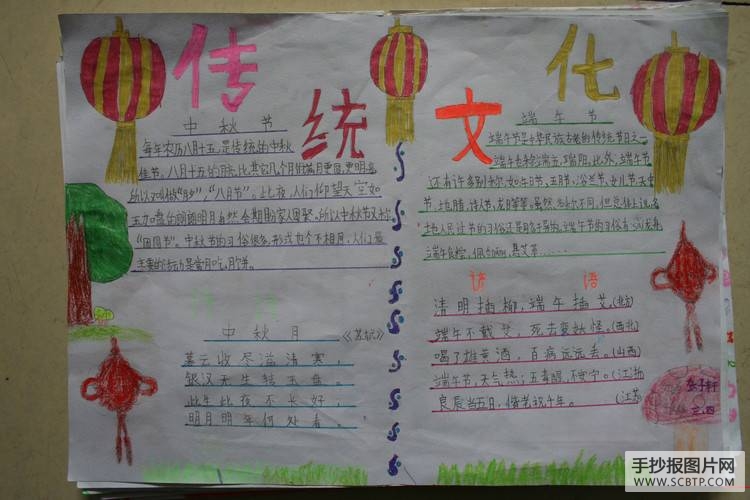 传统文化
中秋节
每年农历八月十五,是传统的中秋
佳节。八月十五的月亮比其它几个月的满月更圆,更明亮,
所以又叫做“月夕”,“八月节”。此夜,人们仰望天空如
玉如盘的朗朗明月自然会期盼家人团聚。所以中秋节又称
“团圆节”。中秋节的习俗很多,形式也个不相同,人们最
主要的活动是赏月吃月饼。
中秋月
《苏轼》
暮云收尽溢清寒,
银汉无生转玉盘。
此生此夜不长好,
明月明年何处看。
端午节
端午节是中华民族古老的传统节日之一。
端午也称端五,端阳。此外,端午节
还有许多别称,如:午日节,五月节,浴兰节,女儿节,天中
节,地腊,诗人节,龙日等等。虽然名称不同,但总体上说,各
地人民过节的习俗还是同多于异的。端午节的习俗有:sài龙舟,
端午食粽,佩香náng,悬艾草……
谚语
清明插柳,端午插艾。(北方)
端午不戴艾,死去变妖怪。(西北)
喝了雄黄酒,百病远远丢。(山西)
端午节,天气热;五毒醒,不安宁。(江浙)
良辰当五日,偕老祝千年。(江苏)
手抄报图片网
WWW.SCBTP.COM